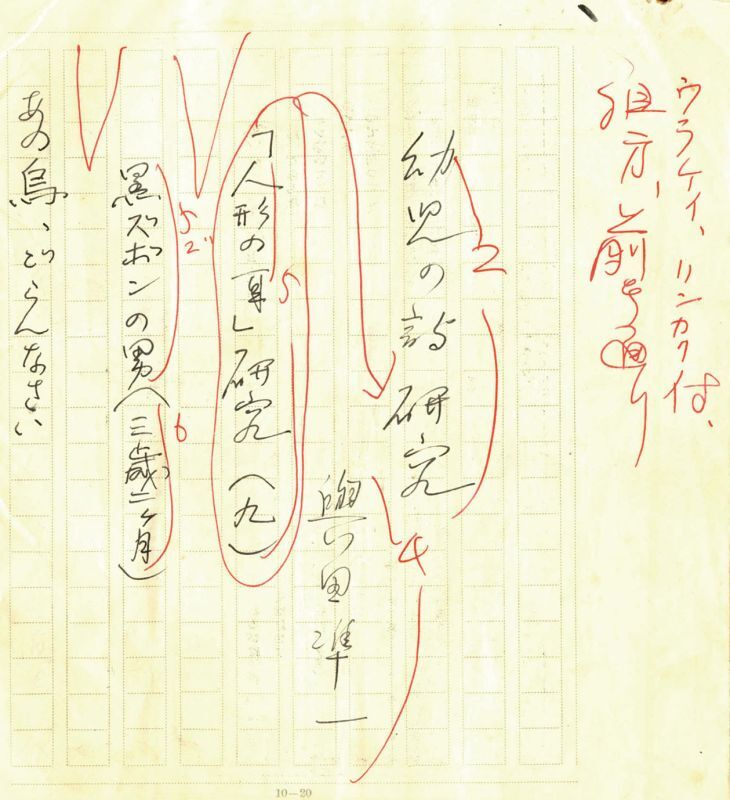 ウラケイ、リンカク付、
組方、と前き通り
幼児の詩研究
2
與田凖一
4
「人形の耳」研究(九)
5
黒ズボンの男(三歳二ケ月)
5
2"
6
あの鳥、ごらんなさい
10—20